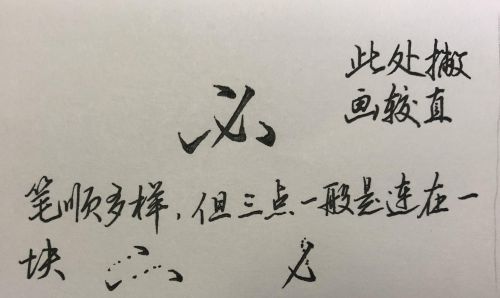 此处撇
画较直
必
笔顺多样，但三点一般是连在一
块